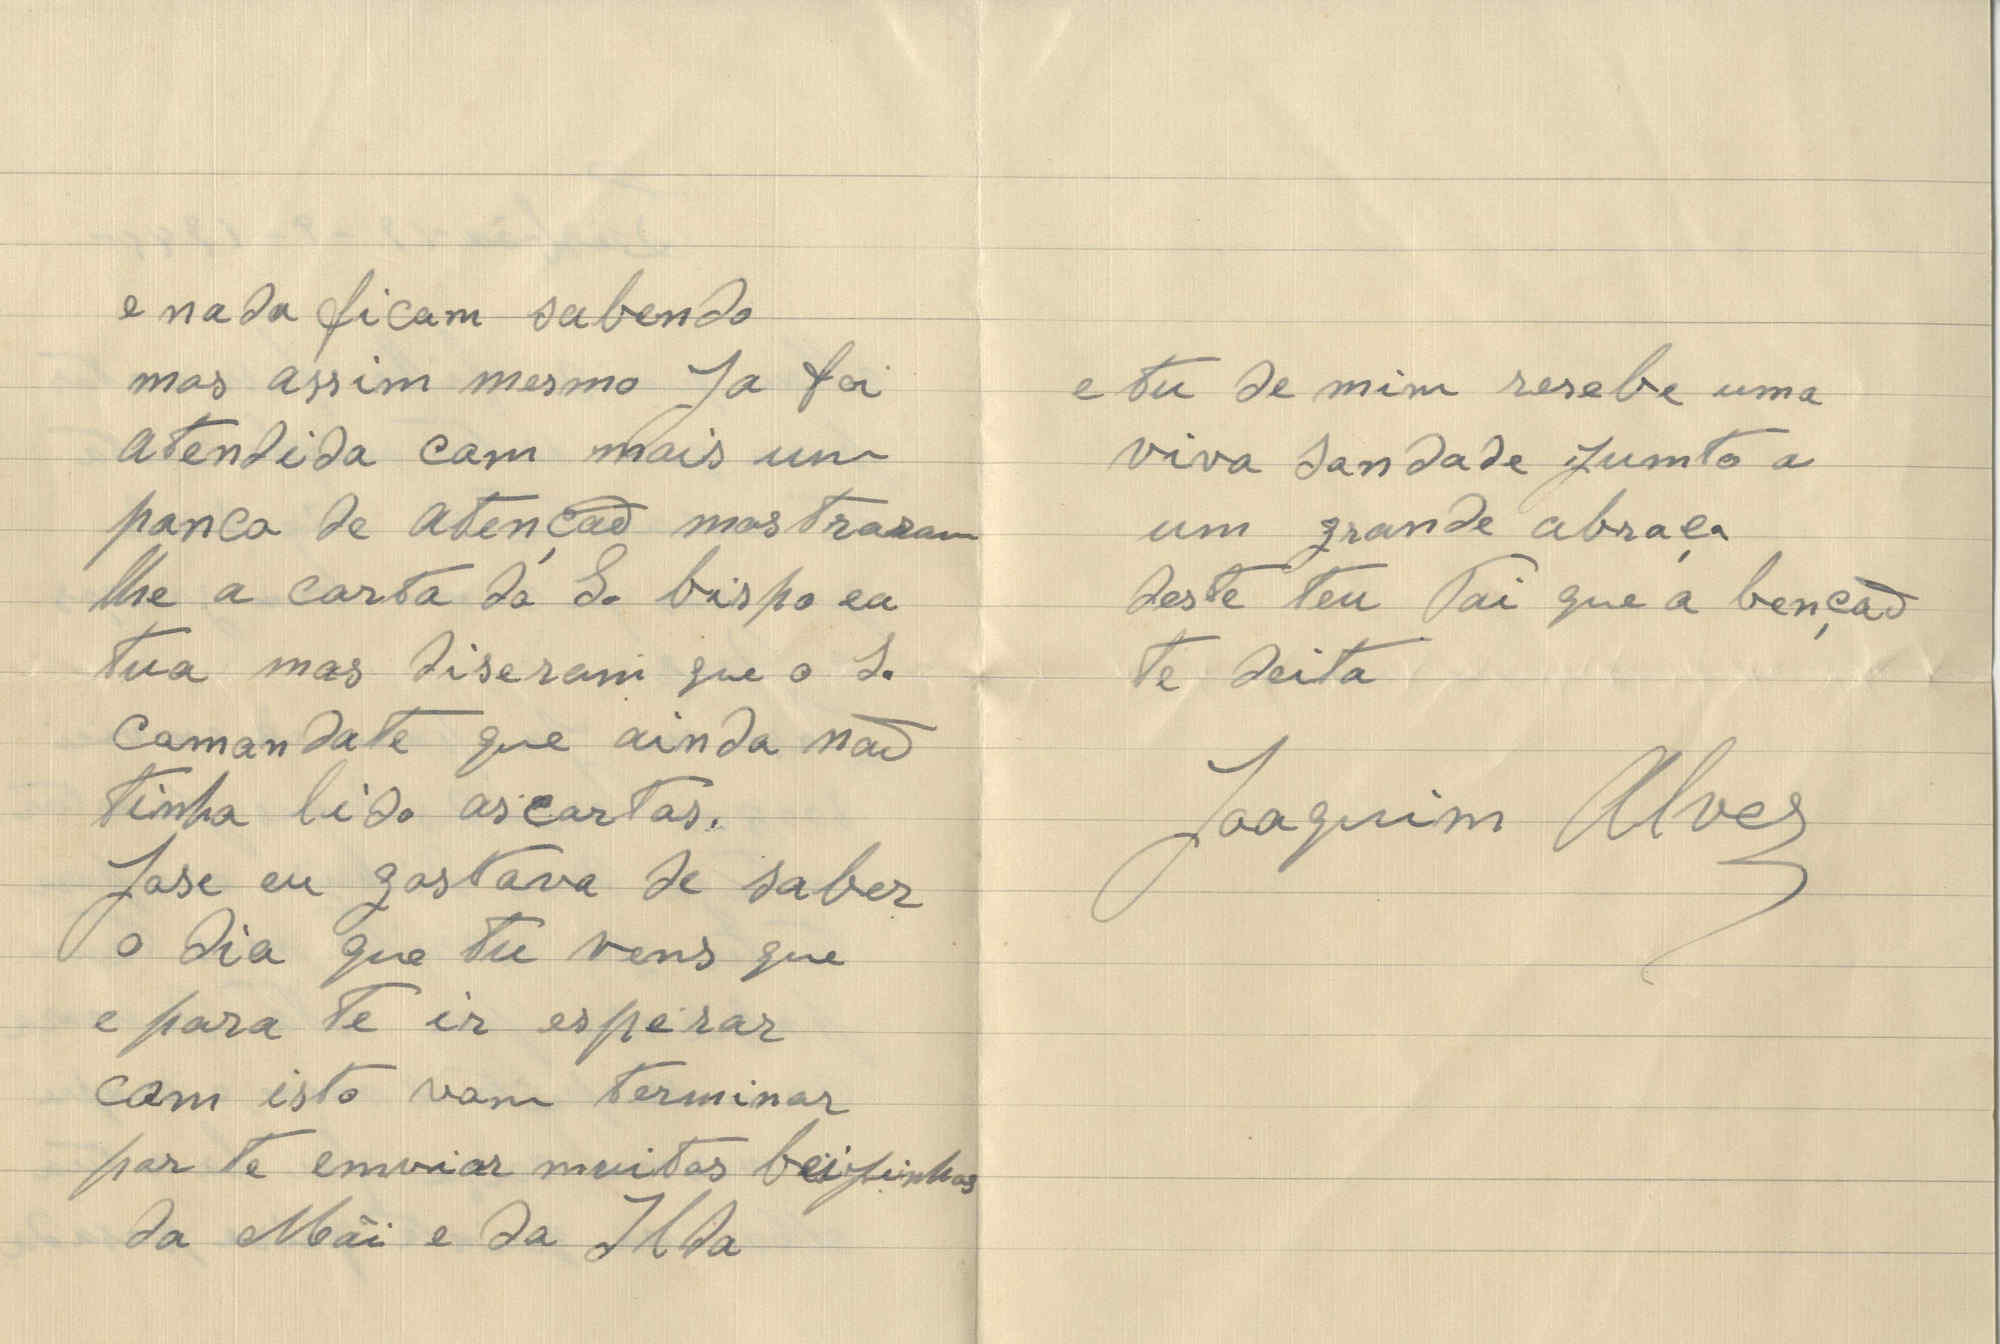 e nada ficam sabendo
mas assim mesmo Ja foi
atendida com mais um
pouco de atenção mostraram
lhe a carta dó S. bispo ea
tua mas diseram que o S.
comandate que ainda não
tinha lido as cartas.
Jose eu gostava de saber
o dia que tu vens que
e para te ir esperar
com isto vou terminar
por te emviar muitos beijinhos
da Mãi e da Ilda
e tu de mim resebe uma
viva saudade jumto a
um grande abraço
deste teu Pai que a benção
te deita
Joaquim Alves